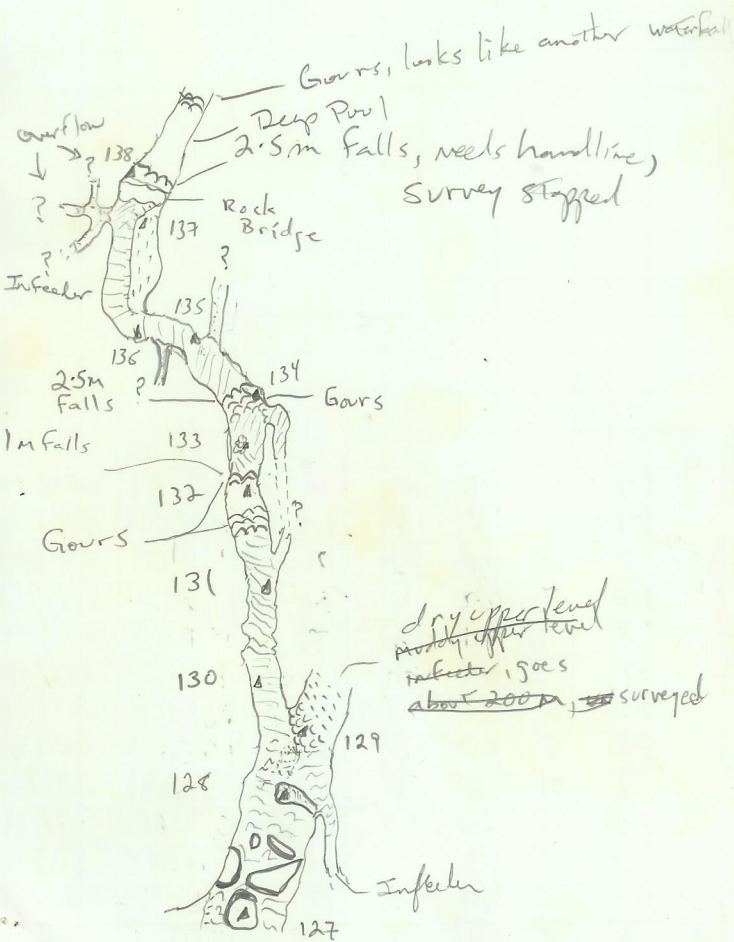 Gours, looks like another waterfall
Deep Pool
overflow
?
138
2.5m Falls, needs handline,
survey stopped
?
Rock
Bridge
137
?
?
Infeeder
135
136
134
2.5m
Falls
?
Gours
1m Falls
133
132
?
Gours
131
dry upper level
muddy upper level
infeeder, goes
about 200m, surveyed
130
129
128
Infeeder
127